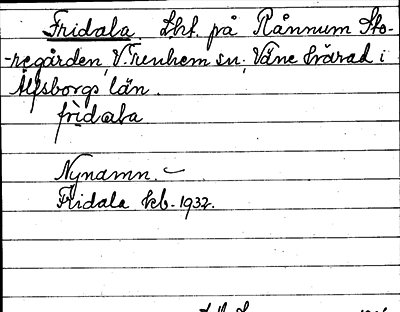 Fridala. Lht. på Rånnum Sto-
-regården, V. Trenhem sn; Väne härad i
Älfsborgs län.
frìdala
Nynamn. –
Fridala kb. 1932.